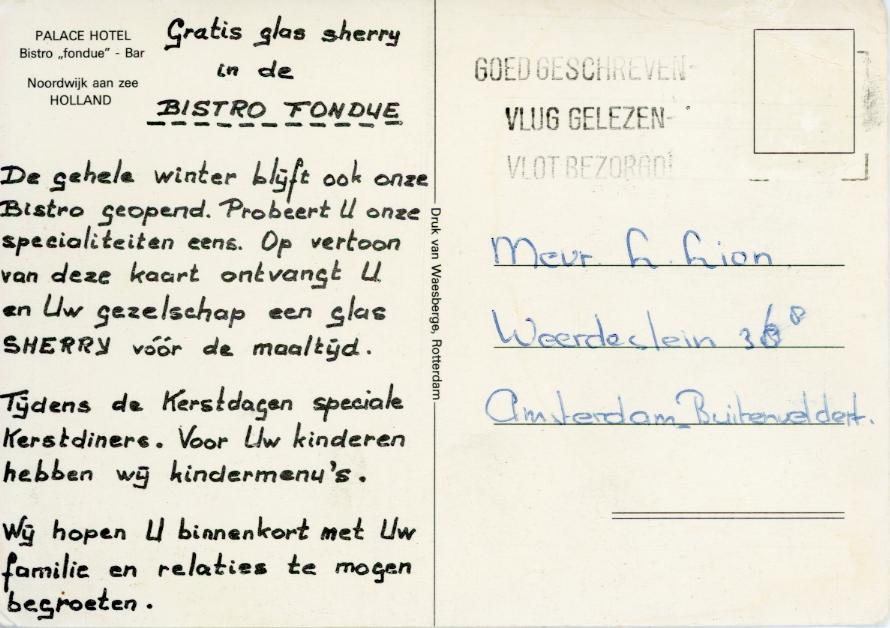 PALACE HOTEL
Bistro „fondue" - Bar
Noordwijk aan zee
HOLLAND
Gratis glas sherry
in de
BISTRO FONDUE
De gehele winter blijft ook onze
Bistro geopend. Probeert U onze
specialiteiten eens. Op vertoon
van deze kaart ontvangt U
en Uw gezelschap een glas
SHERRY vóór de maaltijd.
Tijdens de Kerstdagen speciale
Kerstdiners. Voor Uw kinderen
hebben wij kindermenu's.
Wij hopen U binnenkort met Uw
familie en relaties te mogen
begroeten.
Druk van Waesberge, Rotterdam
GOED GESCHREVEN-
VLUG GELEZEN-
VLOT BEZORGD!
Mevr. L. Lion
Weerdestein
Amsterdam-Buitenveldert.